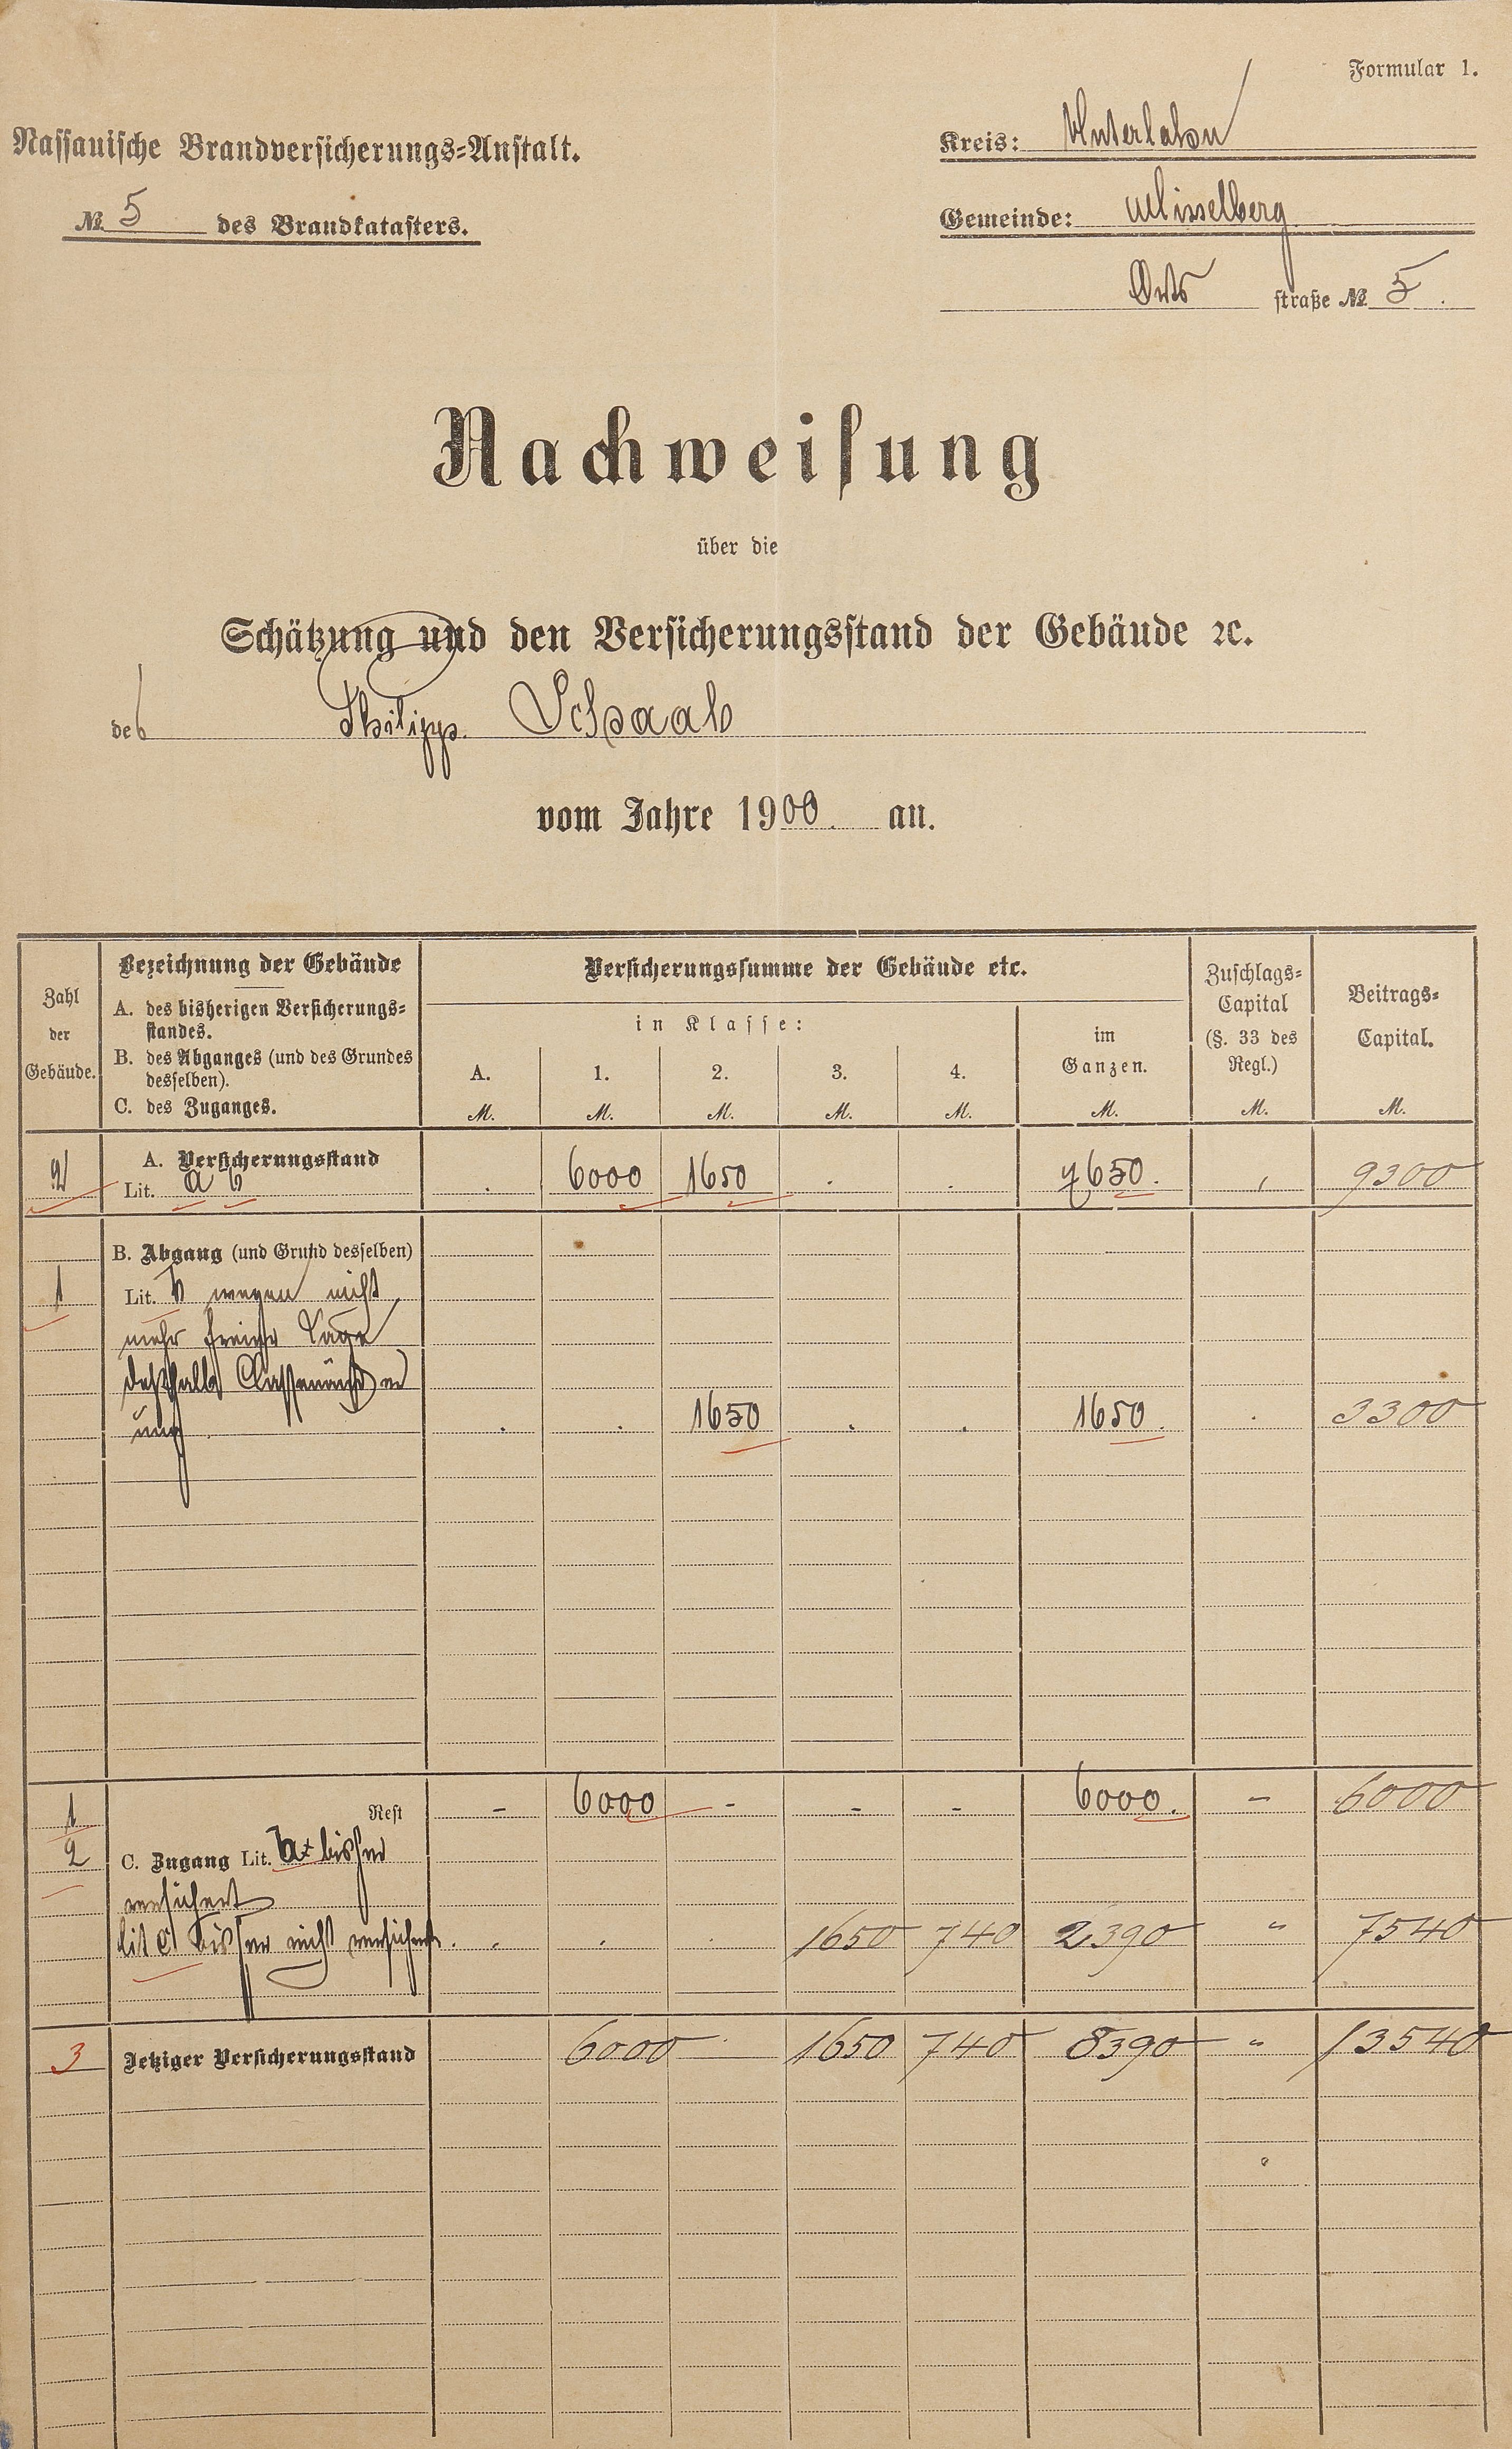 Formular 1.
Nassauische Brandversicherungs-Anstalt.
Kreis: Unterlahn
№ 5 des Brandkatasters.
Gemeinde: Misselberg
Orts straße № 5.
Nachweisung
über die
Schätzung und den Versicherungsstand der Gebäude ꝛc.
des Philipp Schaab
vom Jahre 1900. an.
Zahl der Gebäude.
Bezeichnung der Gebäude
A. des bisherigen Versicherungs-
standes.
B. des Abganges (und des Grundes
desselben).
C. des Zuganges.
Versicherungssumme der Gebäude etc.
in Klasse:
A. 1. 2. 3. 4.
im Ganzen.
Zuschlags-
Capital
(§. 33 des
Regl.)
Beitrags-
Capital.
M. M. M. M. M. M. M. M.
A. Versicherungsstand
2 Lit. a b . 6000 1650 . . 7650. , 9300
B. Abgang (und Grund desselben)
1 Lit. b wegen nicht
mehr freier Lage
deßhalb
ung . . 1650 . . 1650. . 3300
1 Rest - 6000 - - - 6000. - 6000
2 C. Zugang Lit. b bisher
versichert
lit c bisher nicht versichert. . . . 1650 740 2390 " 7540
3 Jetziger Versicherungsstand 6000 . 1650 740 8390 " 13540